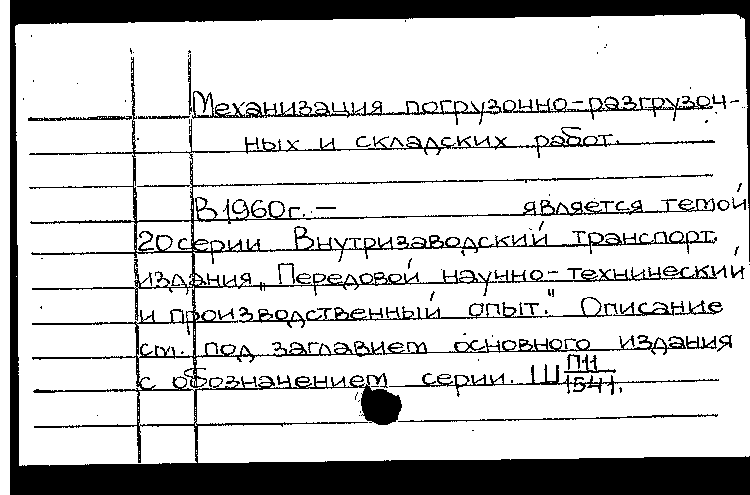 Механизация погрузочно-разгрузоч-
ных и складских работ.
В 1960г. — является темой
20 серии Внутризаводский транспорт.
издания „Передовой научно-технический
и производственный опыт." Описание
см. под заглавием основного издания
с обозначением серии. Ш П11/1541.